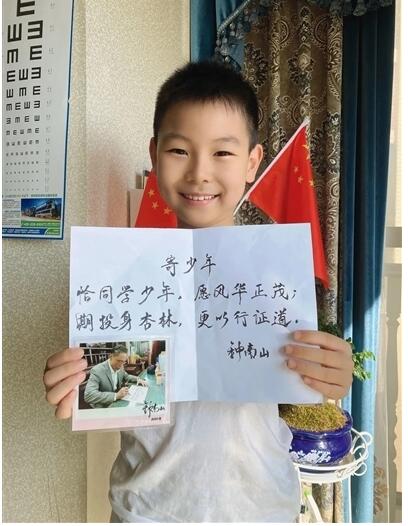 寄少年
恰同学少年，愿风华正茂；
期投身杏林，更以行证道。
钟南山
钟南山